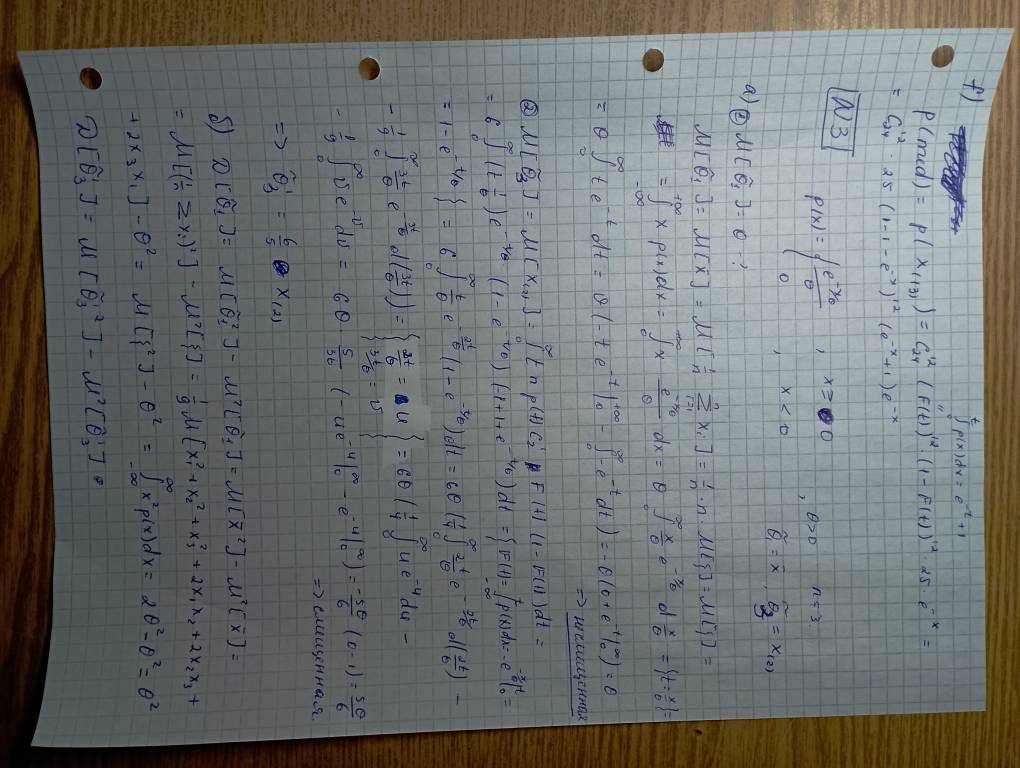 f)
∫₀ᵗ p(x)dx = e^{-t} + 1
P(med) = p(x_{(13)}) = C_{24}^{12} (F(t))^{12} · (1 - F(t))^{12} · 25 · e^{-x} =
= C_{24}^{12} · 25 (1 - 1 - e^{-x})^{12} (e^{-x} + 1) e^{-x}
N3
p(x) = { e^{-x/θ}/θ , x ≥ 0 , θ > 0 n = 3
0 , x < 0 θ̂₁ = x̄ , θ̂₃ = x_{(2)}
a) ① M[θ̂₁] = θ - ?
M[θ̂₁] = M[x̄] = M[1/n Σ_{i=1}^n x_i] = 1/n · n · M[ξ] = M[ξ] =
= ∫_{-∞}^{+∞} x p(x)dx = ∫₀^∞ x e^{-x/θ}/θ dx = θ ∫₀^∞ x/θ e^{-x/θ} d x/θ = {t = x/θ} =
= θ ∫₀^∞ t e^{-t} dt = θ(-t e^{-t}|₀^{+∞} - ∫₀^∞ -e^{-t} dt) = -θ(0 + e^{-t}|₀^∞) = θ
=> несмещенная
② M[θ̂₃] = M[x_{(2)}] = ∫₀^∞ t n p(t) C₂¹ F(t) (1 - F(t)) dt =
= 6 ∫₀^∞ (t 1/θ) e^{-t/θ} (1 - e^{-t/θ}) (1 + 1 + e^{-t/θ}) dt = {F(t) = ∫_{-∞}^t p(x)dx = e^{-x/θ}|₀^t =
= 1 - e^{-t/θ}} = 6 ∫₀^∞ t/θ e^{-2t/θ} (1 - e^{-t/θ}) dt = 6θ (1/4 ∫₀^∞ 2t/θ e^{-2t/θ} d(2t/θ) -
- 1/9 ∫₀^∞ 3t/θ e^{-3t/θ} d(3t/θ)) = {2t/θ = u, 3t/θ = v} = 6θ (1/4 ∫₀^∞ u e^{-u} du -
- 1/9 ∫₀^∞ v e^{-v} dv = 6θ 5/36 (-u e^{-u}|₀^∞ - e^{-u}|₀^∞) = -5θ/6 (0 - 1) = 5θ/6
=> смещенная
=> θ̂₃' = 6/5 x_{(2)}
б) D[θ̂₁] = M[θ̂₁²] - M²[θ̂₁] = M[x̄²] - M²[x̄] =
= M[(1/n Σ x_i)²] - M²[ξ] = 1/9 M[x₁² + x₂² + x₃² + 2x₁x₂ + 2x₂x₃ +
+ 2x₃x₁] - θ² = M[ξ²] - θ² = ∫_{-∞}^∞ x² p(x)dx = 2θ² - θ² = θ²
D[θ̂₃'] = M[θ̂₃'²] - M²[θ̂₃']